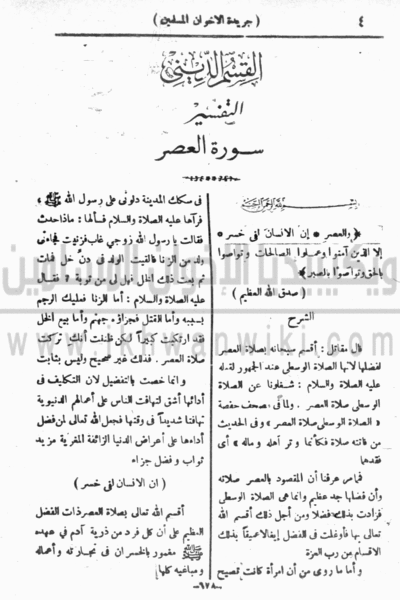 ٤
( جريدة الاخوان المسلمين )
القسم الديني
التفسير
سورة العصر
بسم الله الرحمن الرحيم
﴿ والعصر * إن الانسان لفى خسر *
إلا الذين آمنوا وعملوا الصالحات وتواصوا
بالحق وتواصوا بالصبر ﴾
( صدق الله العظيم )
الشرح
قال مقاتل : أقسم سبحانه بصلاة العصر
لفضلها لانها الصلاة الوسطى عند الجمهور لقوله
عليه الصلاة والسلام : شغلونا عن الصلاة
الوسطى صلاة العصر . ولما فى مصحف حفصة
« الصلاة الوسطى صلاة العصر » وفى الحديث
من فاتته صلاة فكأنما وتر أهله وماله » أى
فقدهما
فما من عرفنا أن المقصود بالعصر صلاته
وأن فضلها جد عظيم وانما هى الصلاة الوسطى
فزادت بذلك فضلا ومن أجل ذلك أقسم الله
تعالى بها فأوغلت فى الفضل إيغالا عميقا بذلك
الاقسام من رب العزة
وأما ما روى من أن امرأة كانت تصيح
فى سكك المدينة دلونى على رسول الله ﷺ
فرآها عليه الصلاة والسلام فسألها : ماذا حدث
فقالت يا رسول الله زوجي غاب فزنيت فجاءنى
ولد من الزنا فالقيت الولد فى دن خل فمات
ثم بعت ذلك الخل فهل لى من توبة ؟ فقال
عليه الصلاة والسلام : أما الزنا فعليك الرجم
بسببه وأما القتل فجزاؤه جهنم وأما بيع الخل
فقد ارتكبت كبيرا لكن ظننت أنك تركت
صلاة العصر . فذلك غير صحيح وليس بثابت
و انما خصت بالتفضيل لان التكاليف فى
أدائها أشق لتهافت الناس على أعمالهم الدنيوية
تهافتا شديدا فى وقتها فجعل الله تعالى لمن فضل
أداءها على أعراض الدنيا الزائفة المغرية مزيد
ثواب و فضل جزاء
( ان الانسان لفى خسر )
أقسم الله تعالى بصلاة العصر ذات الفضل
العظيم على أن كل فرد من ذرية آدم فى عهده
ﷺ مغمور بالخسران فى تجارته وأعماله
ومباغيه كلها
—٦٧٨—
ikhwanwiki.com